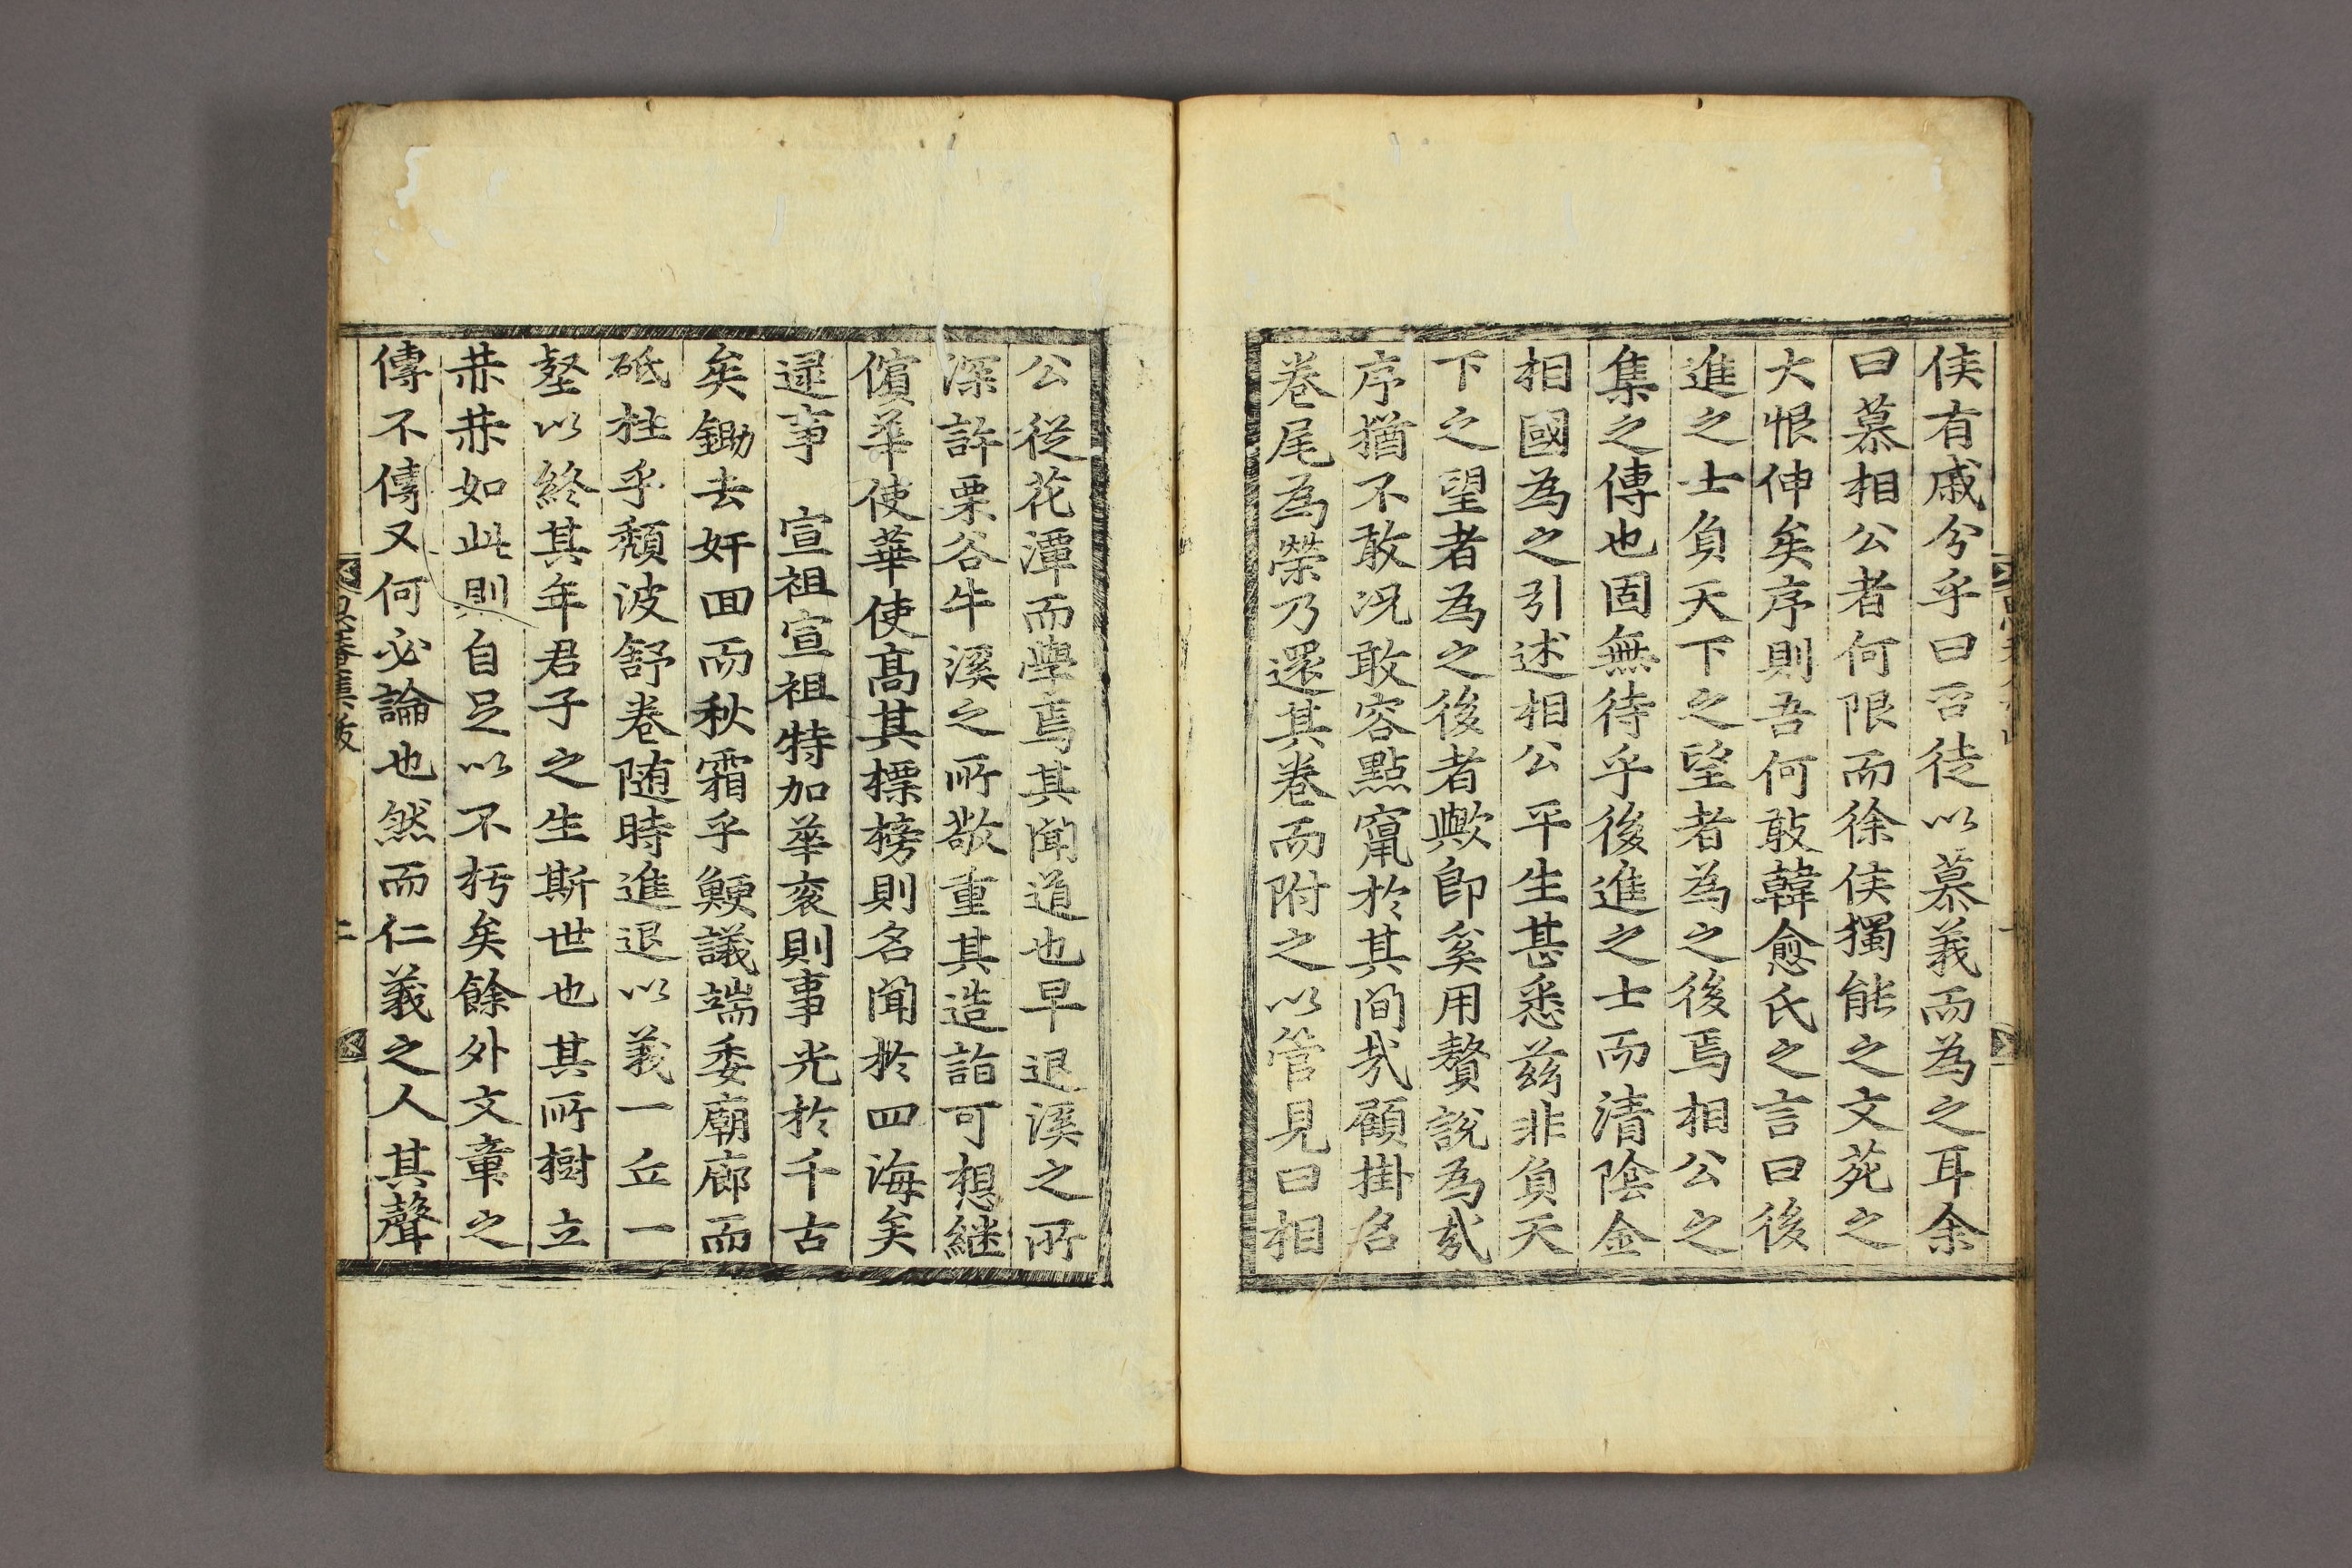 侯有戚兮乎曰否徒以慕義而為之耳余
曰慕相公者何限而徐侯獨能之文苑之
大恨伸矣序則吾何敢韓愈氏之言曰後
進之士負天下之望者為之後焉相公之
集之傳也固無待乎後進之士而清陰金
相國為之引述相公平生甚悉茲非負天
下之望者為之後者歟卽奚用贅說為㢤
序猶不敢况敢容點竄於其間㢤顧掛名
卷尾為榮乃還其卷而附之以管見曰相
公從花潭而學焉其聞道也早退溪之所
深許栗谷牛溪之所敬重其造詣可想継
儐華使華使高其標榜則名聞於四海矣
逯事 宣祖宣祖特加華衮則事光於千古
矣鋤去奸回而秋霜乎鯁議端委廟廊而
砥柱乎頹波舒卷随時進退以義一丘一
壑以終其年君子之生斯世也其所樹立
棊棊如此則自足以不朽矣餘外文章之
傳不傳又何必論也然而仁義之人其聲
集跋
二